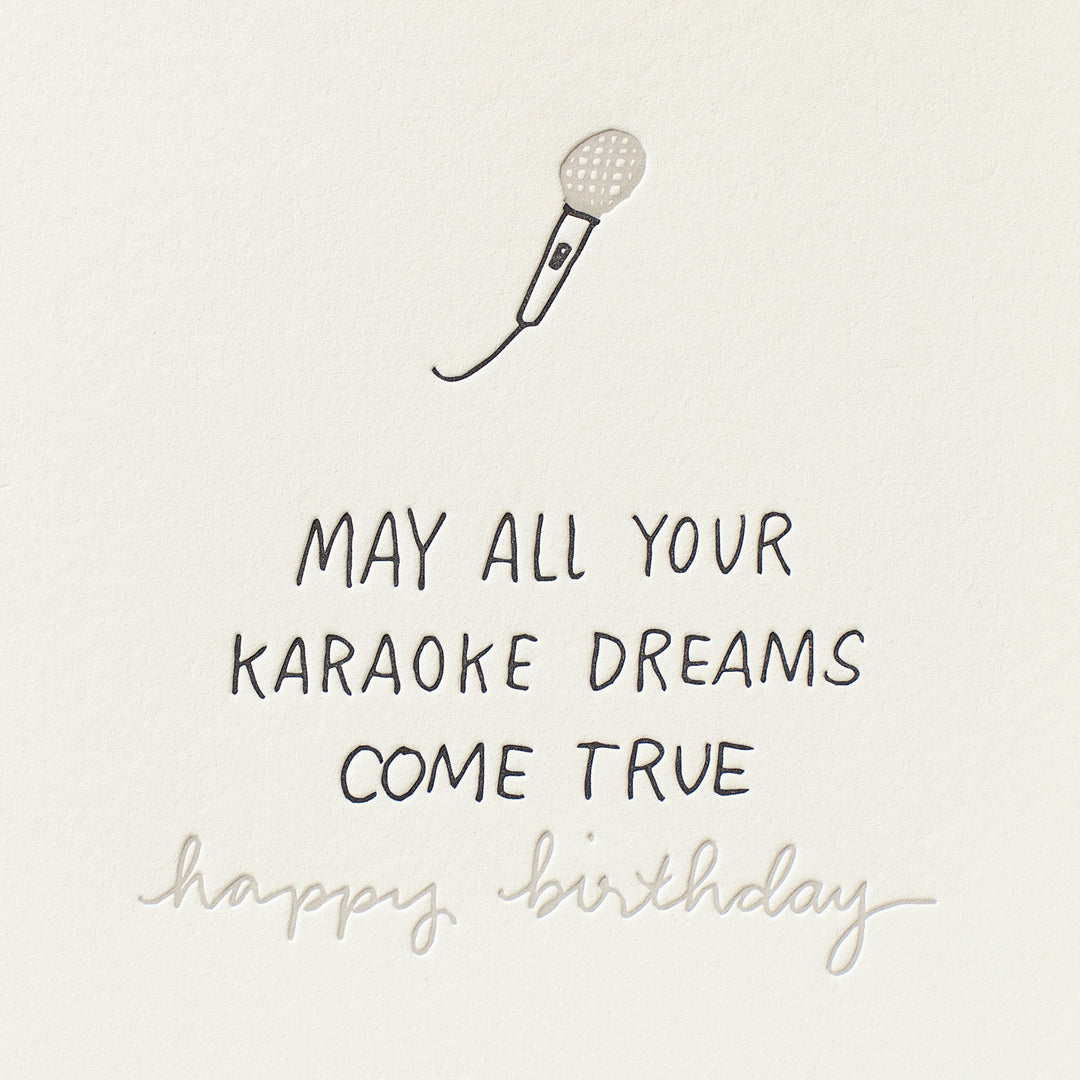 MAY ALL YOUR
KARAOKE DREAMS
COME TRUE
happy birthday